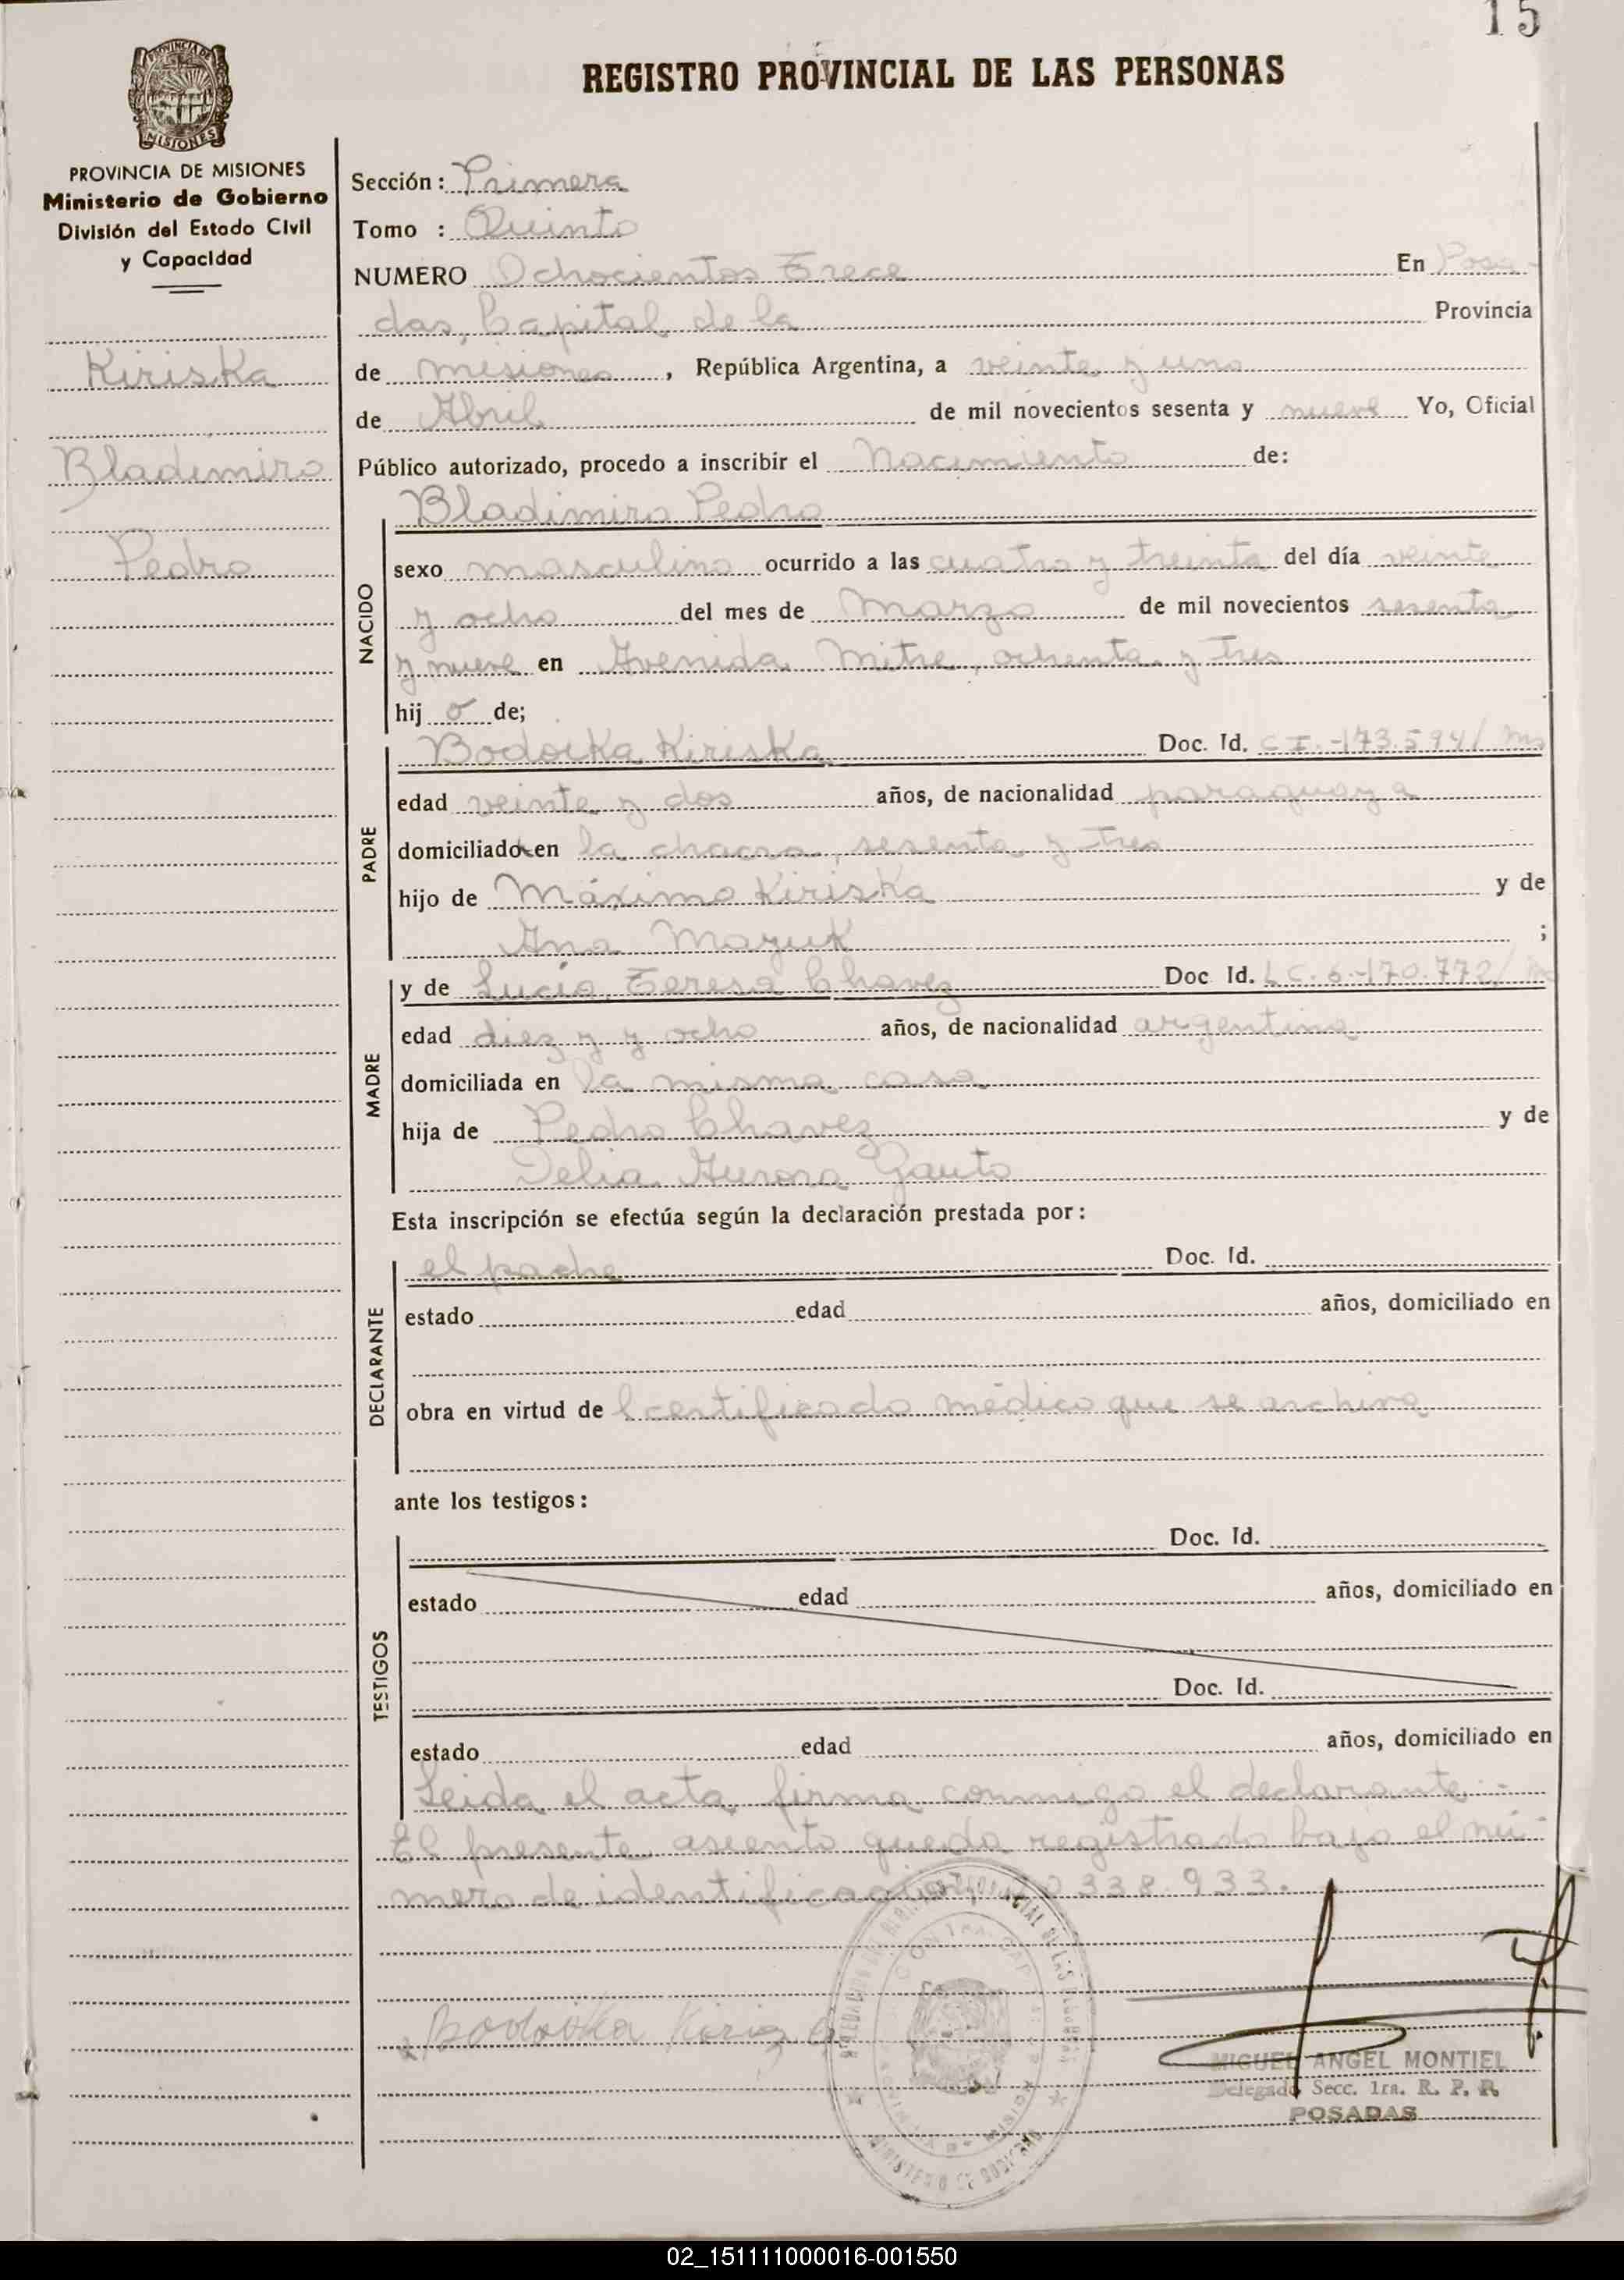 15
REGISTRO PROVINCIAL DE LAS PERSONAS
PROVINCIA DE MISIONES
Ministerio de Gobierno
División del Estado Civil
y Capacidad
Kiriska
Blademiro
Pedro
Sección: Primera
Tomo : Quinto
NUMERO Ochocientos Trece En Posa-
das, Capital de la Provincia
de misiones, República Argentina, a veinte y uno
de Abril de mil novecientos sesenta y nueve Yo, Oficial
Público autorizado, procedo a inscribir el Nacimiento de:
NACIDO
Bladimiro Pedro
sexo masculino ocurrido a las cuatro y treinta del día veinte
y ocho del mes de Marzo de mil novecientos sesenta
y nueve en Avenida Mitre, ochenta y tres
hij o de;
PADRE
Bodoika Kiriska Doc. Id. C I.-173.594/ Ms
edad veinte y dos años, de nacionalidad paraguaya
domiciliado en la chacra, sesenta y tres
hijo de Máximo Kiriska y de
Ana Mazuk ;
MADRE
y de Lucía Teresa Chavez Doc Id. L C. 6.-170.772/
edad diez y y ocho años, de nacionalidad argentina
domiciliada en la misma casa
hija de Pedro Chavez y de
Delia Aurora Gauto
Esta inscripción se efectúa según la declaración prestada por:
DECLARANTE
el padre Doc. Id.
estado edad años, domiciliado en
obra en virtud de l certificado médico que se archiva
ante los testigos:
TESTIGOS
Doc. Id.
estado edad años, domiciliado en
Doc. Id.
estado edad años, domiciliado en
Leida el acta firma conmigo el declarante.-
El presente asiento queda registrado bajo el nú-
mero de identificación 338.933.
Bodoika Kirisca
MIGUEL ANGEL MONTIEL
Delegado Secc. 1ra. R. P. P.
POSADAS
02_151111000016-001550